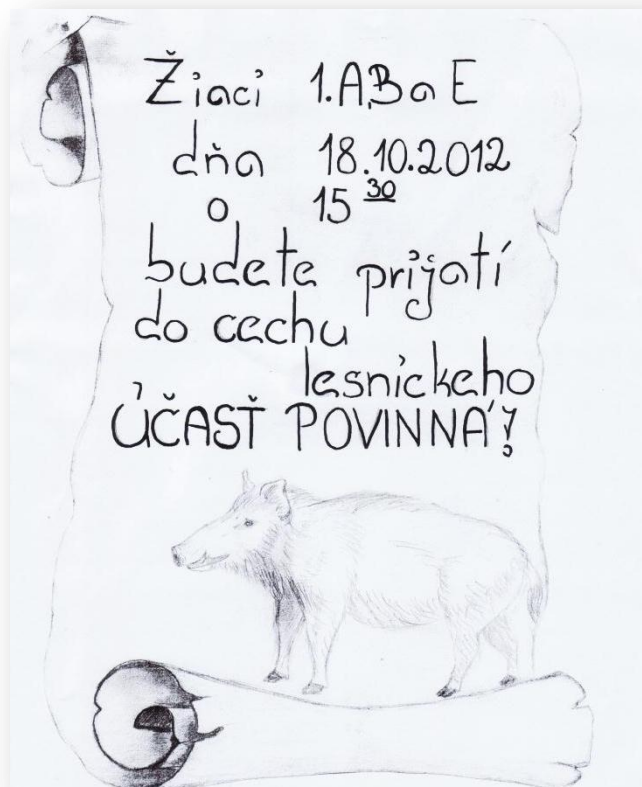 Žiaci 1.A,B a E
dňa 18.10.2012
o 15 30
budete prijatí
do cechu
lesníckeho
ÚČASŤ POVINNÁ!